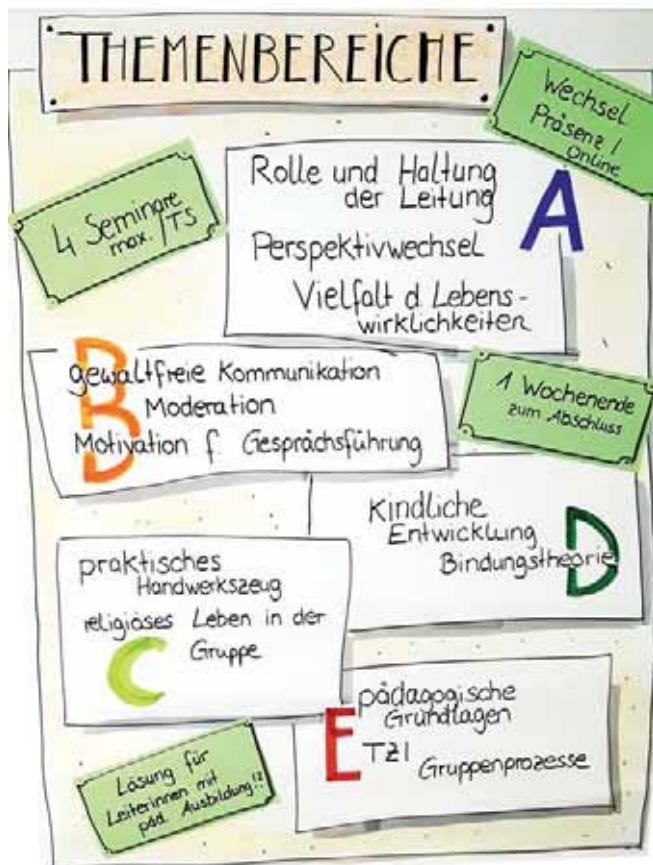 THEMENBEREICHE
Wechsel
Präsenz /
Online
4 Seminare
max. /TS
Rolle und Haltung
der Leitung
A
Perspektivwechsel
Vielfalt d Lebens-
wirklichkeiten
B
gewaltfreie Kommunikation
Moderation
Motivation f. Gesprächsführung
1 Wochenende
zum Abschluss
Kindliche
Entwicklung
Bindungstheorie
D
praktisches
Handwerkszeug
religiöses Leben in der
Gruppe
C
pädagogische
Grundlagen
E
TZI
Gruppenprozesse
Lösung für
Leiterinnen mit
päd. Ausbildung!?